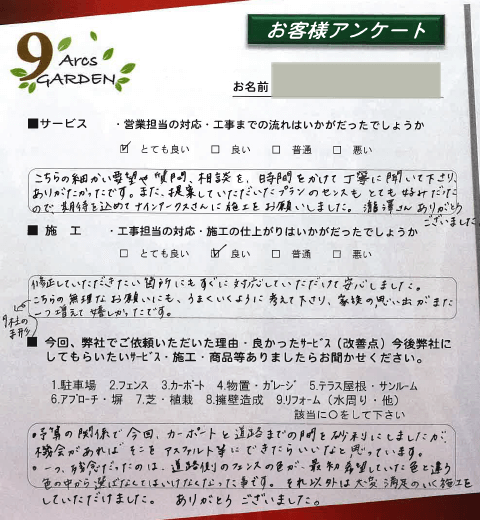 9 Arcs GARDEN
お客様アンケート
お名前
■サービス ・営業担当の対応・工事までの流れはいかがだったでしょうか
☑ とても良い □ 良い □ 普通 □ 悪い
こちらの細かい要望や質問、相談を、時間をかけて丁寧に聞いて下さり、
ありがたかったです。また、提案していただいたプランのセンスもとても好みだった
ので、期待を込めてナインアークスさんに施工をお願いしました。瀧澤さんありがとう
ございました。
■施 工 ・工事担当の対応・施工の仕上がりはいかがだったでしょうか
□ とても良い ☑ 良い □ 普通 □ 悪い
修正していただきたい箇所にもすぐに対応していただけて安心しました。
こちらの無理なお願いにも、うまくいくように考えて下さり、家族の思い出がまた
一つ増えて嬉しかったです。
手形
■ 今回、弊社でご依頼いただいた理由・良かったサービス（改善点）今後弊社に
してもらいたいサービス・施工・商品等ありましたらお聞かせください。
1.駐車場 2.フェンス 3.カーポート 4.物置・ガレージ 5.テラス屋根・サンルーム
6.アプローチ・塀 7.芝・植栽 8.擁壁造成 9.リフォーム（水周り・他）
該当に○をして下さい
・予算の関係で今回、カーポートと道路までの間を砂利にしましたが、
機会があればそこをアスファルト等にできたらいいなと思っています。
・一つ、残念だったのは、道路側のフェンスの色が、最初希望していた色と違う
色の中から選ばなくてはいけなくなった事です。それ以外は大変満足のいく施工を
していただけました。 ありがとうございました。